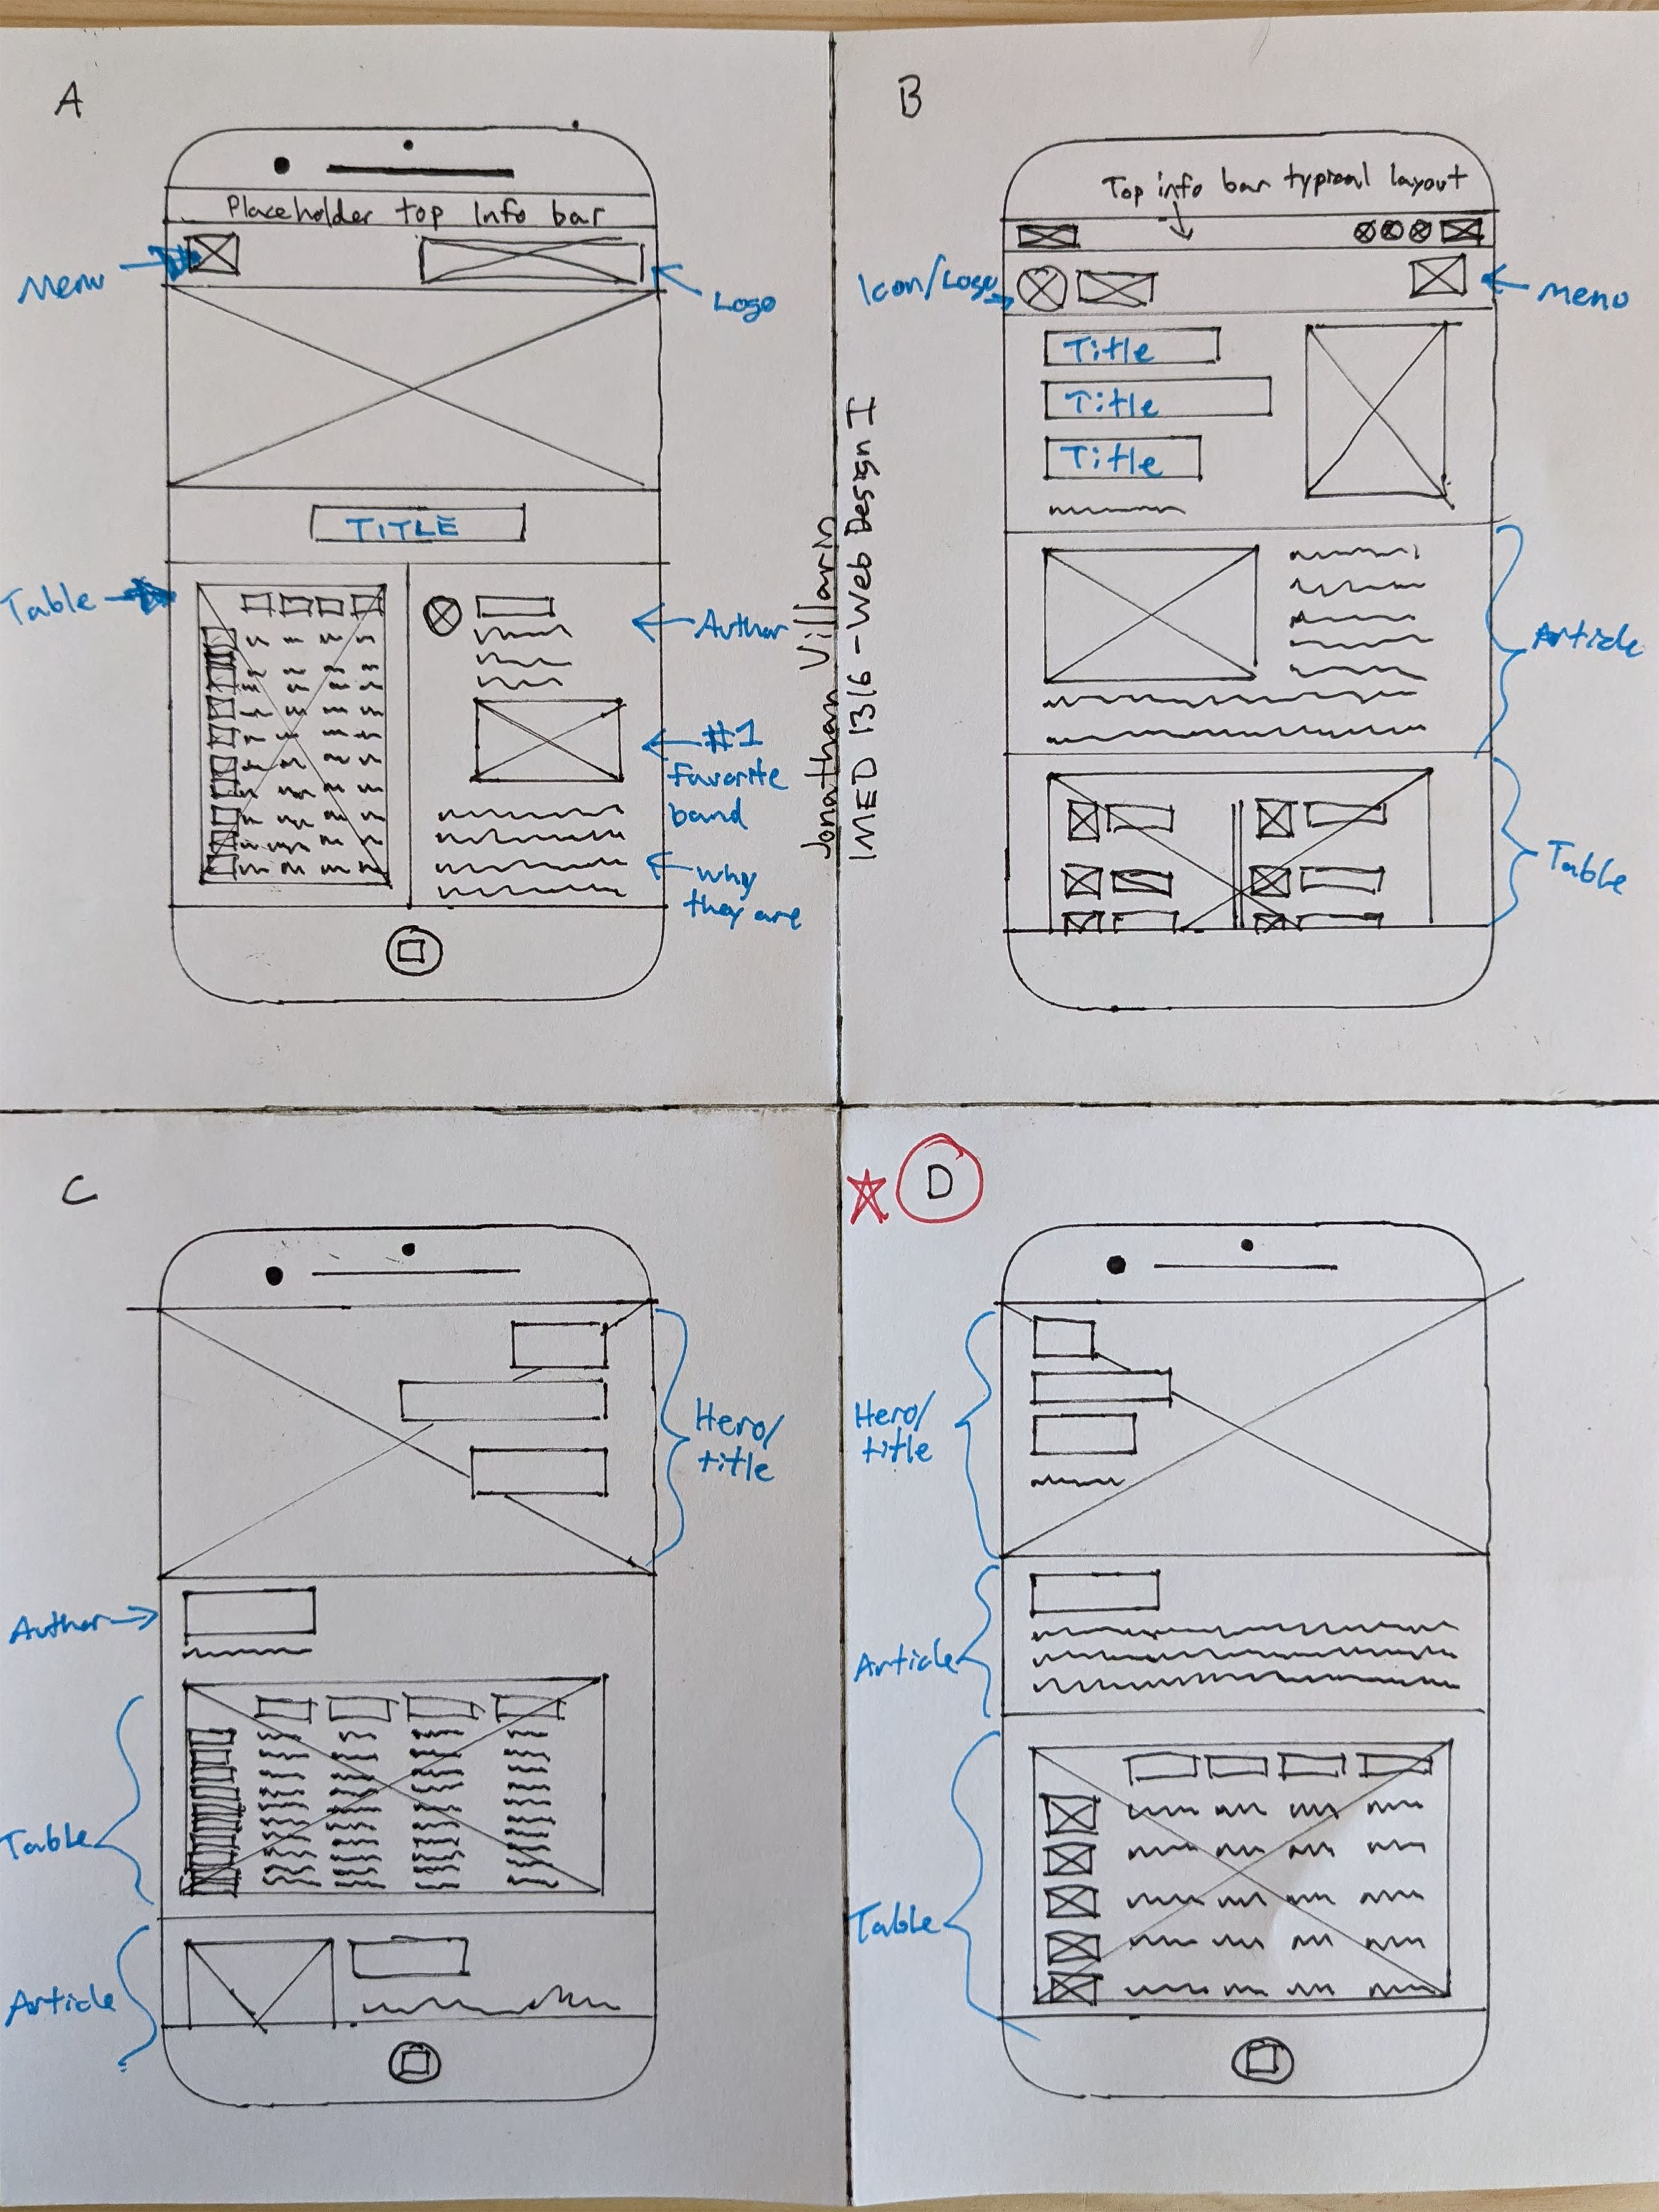 A
Placeholder top Info bar
Menu
Logo
TITLE
Table
Author
#1
Favorite
band
why
they are
Jonathan Villarin
IMED 1316 - Web Design I
B
Top info bar typical layout
Icon/Logo
menu
Title
Title
Title
Article
Table
C
Hero/
title
Author
Table
Article
D
Hero/
title
Article
Table